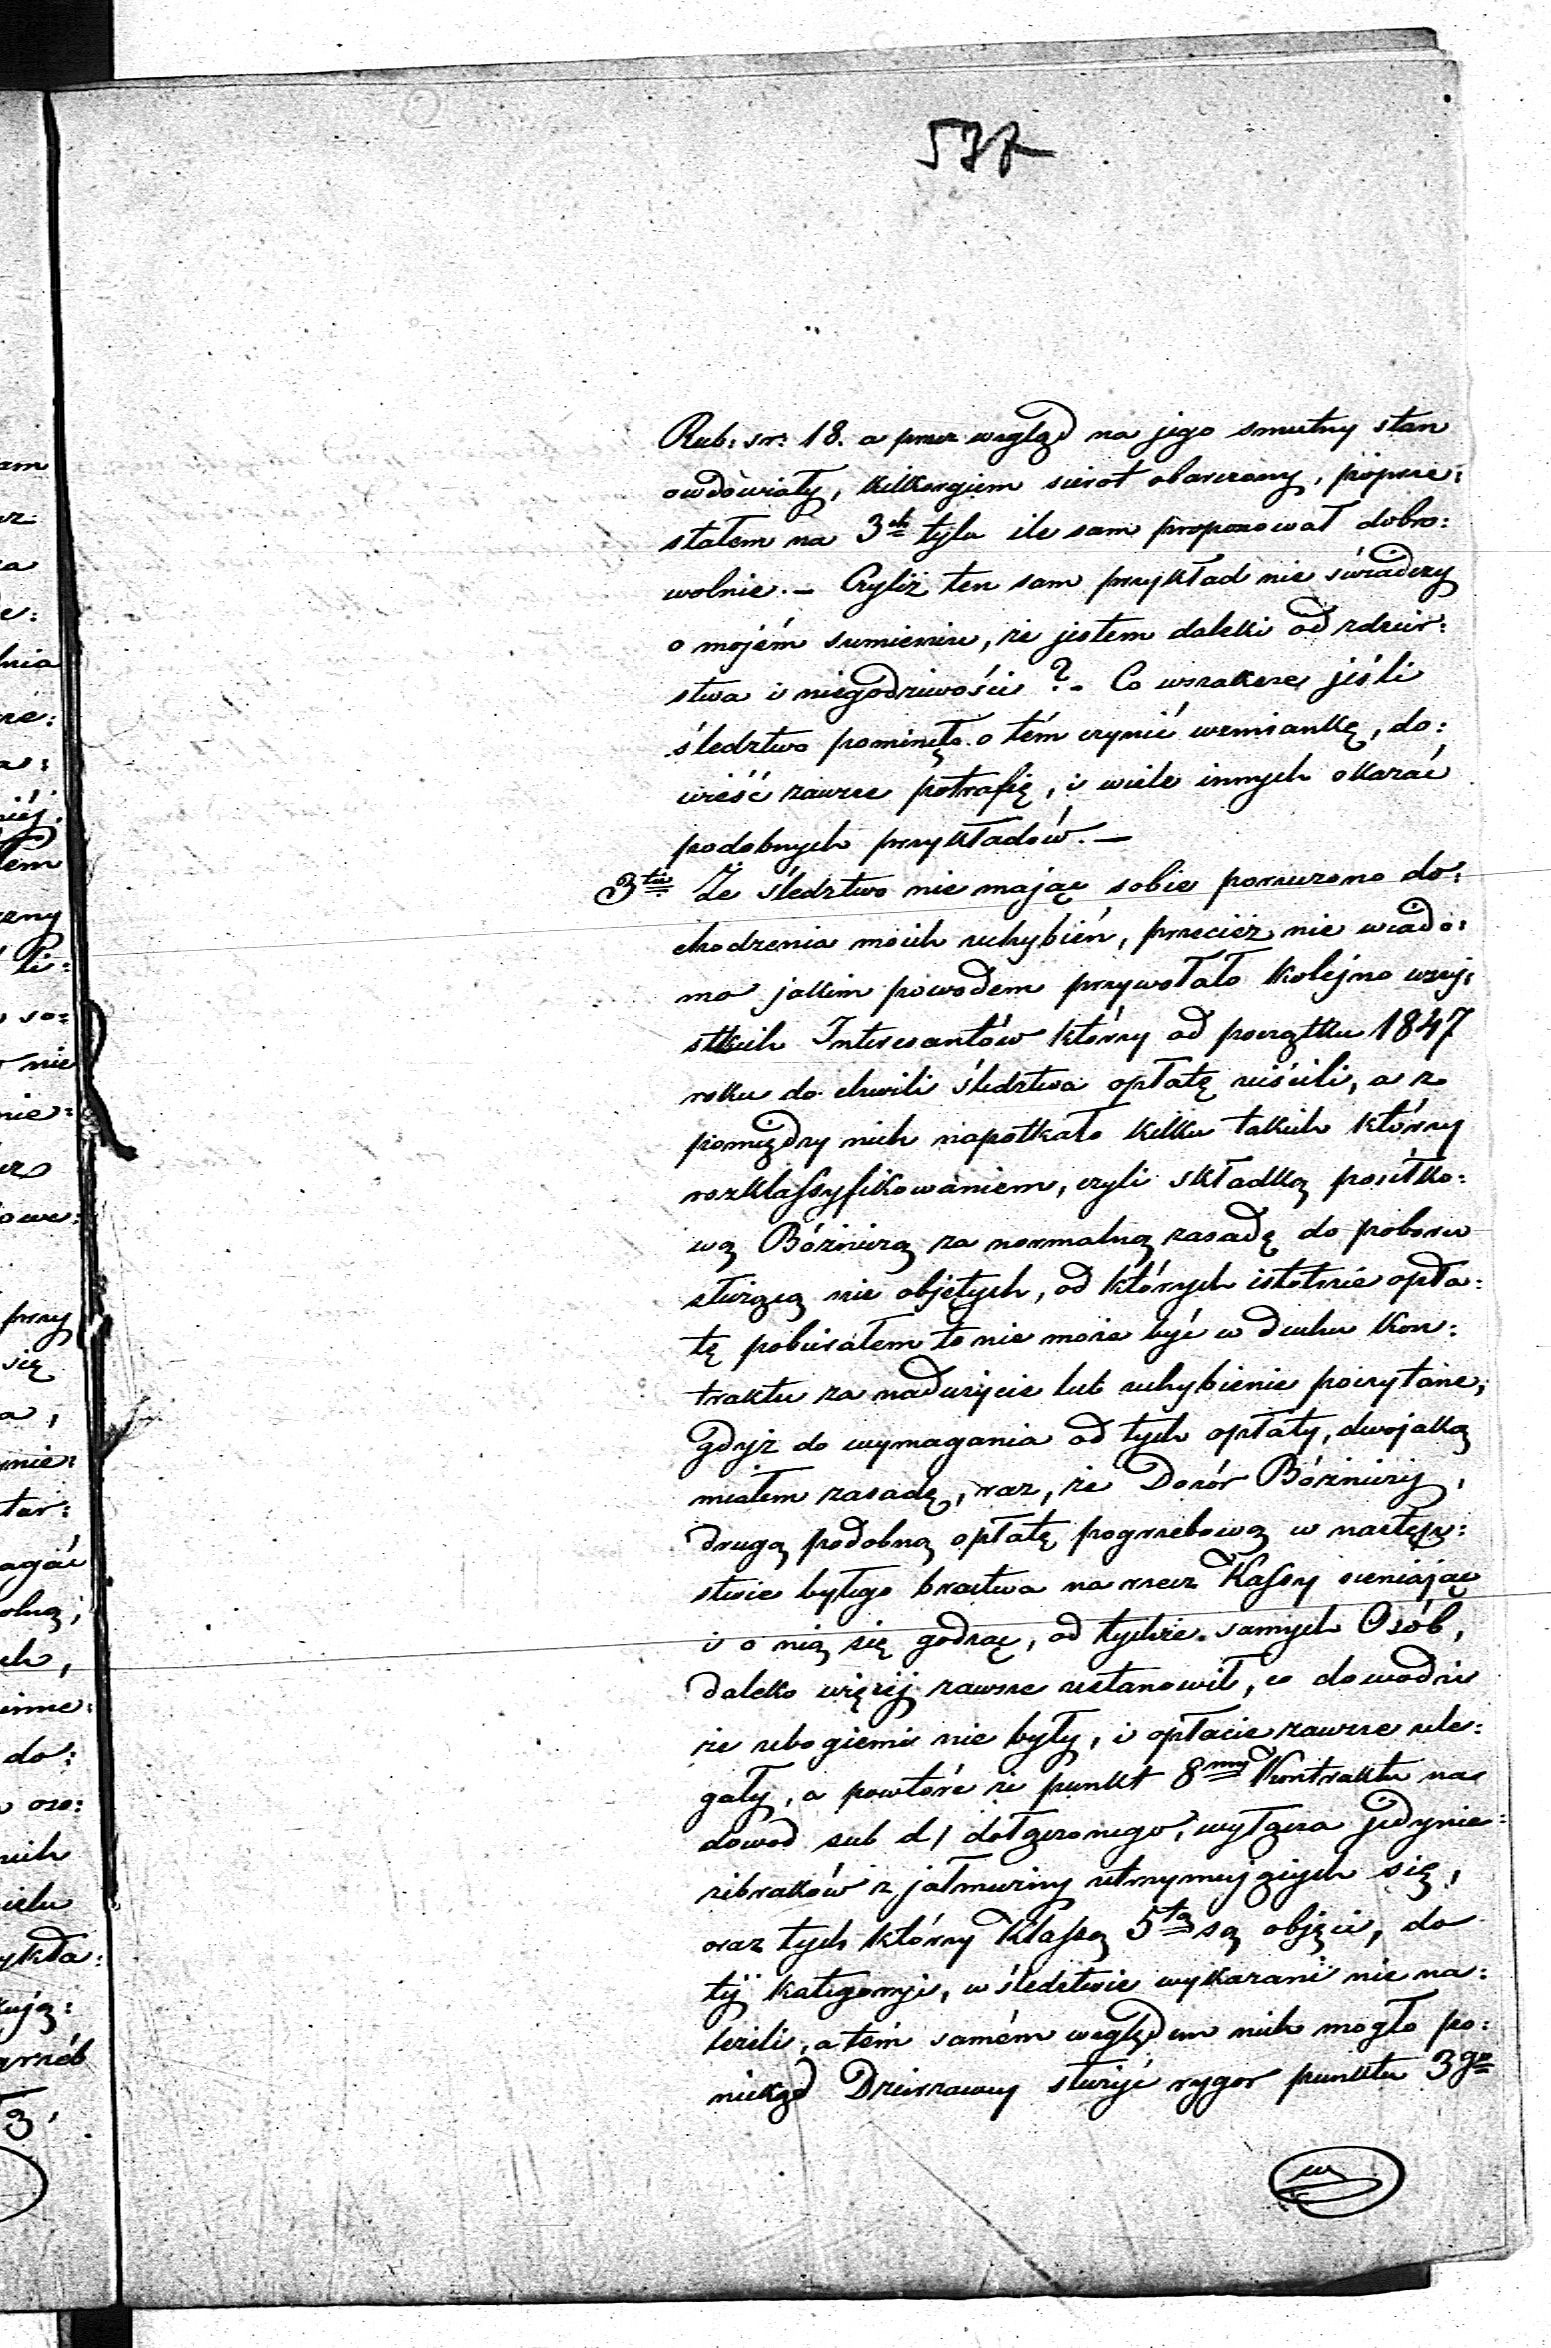 537
Rub: sr: 18. a przez wzgląd na jego smutny stan
owdowiały, kilkorgiem sierot obarczony, poprze:
stałem na 3ch tyla ile sam proponował dobro:
wolnie. – Czyliż ten sam przykład nie świadczy
o mojém sumieniu, że jestem daleki od zdzier:
stwa i niegodziwości? – Co wszakże jeśli
śledztwo pominęło o tém czynić wzmiankę, do:
wieść zawsze potrafię, i wiele innych okazać
podobnych przykładów. –
3tio Że śledztwo nie mając sobie poruczono do:
chodzenia moich uchybień, przecież nie wiado:
mo jakim powodem przywołało kolejno wszy:
stkich Interesantów którzy od początku 1847
roku do chwili śledztwa opłatę uiścili, a z
pomiędzy nich napotkało kilku takich którzy
rozklassyfikowaniem, czyli składką posiłko:
wą Bóżniczą za normalną zasadę do poboru
służącą nie objętych, od których istotnie opła:
tę pobierałem to nie może być w duchu Kon:
traktu za nadużycie lub uchybienie poczytane,
gdyż do wymagania od tych opłaty, dwojaką
miałem zasadę, raz, że Dozór Bóżniczy,
drugą podobną opłatę pogrzebową w następ:
stwie byłego bractwa na rzecz Kassy oceniając
i o nią się godząc, od tychże samych Osób,
daleko więcéj zawsze ustanowił, co dowodzi
że ubogiemi nie były, i opłacie zawsze ule:
gały, a powtóre że punkt 8my Kontraktu na
dowód sub d/ dołączonego, wyłącza jedynie
żebraków z jałmużny utrzymujących się,
oraz tych którzy Klassą 5tą są objęci, do
téj kategoryi, w śledztwie wykazani nie na:
leżeli, a tém samém względem nich mogło po:
niekąd Dzierżawcy służyć rygor punktu 3go